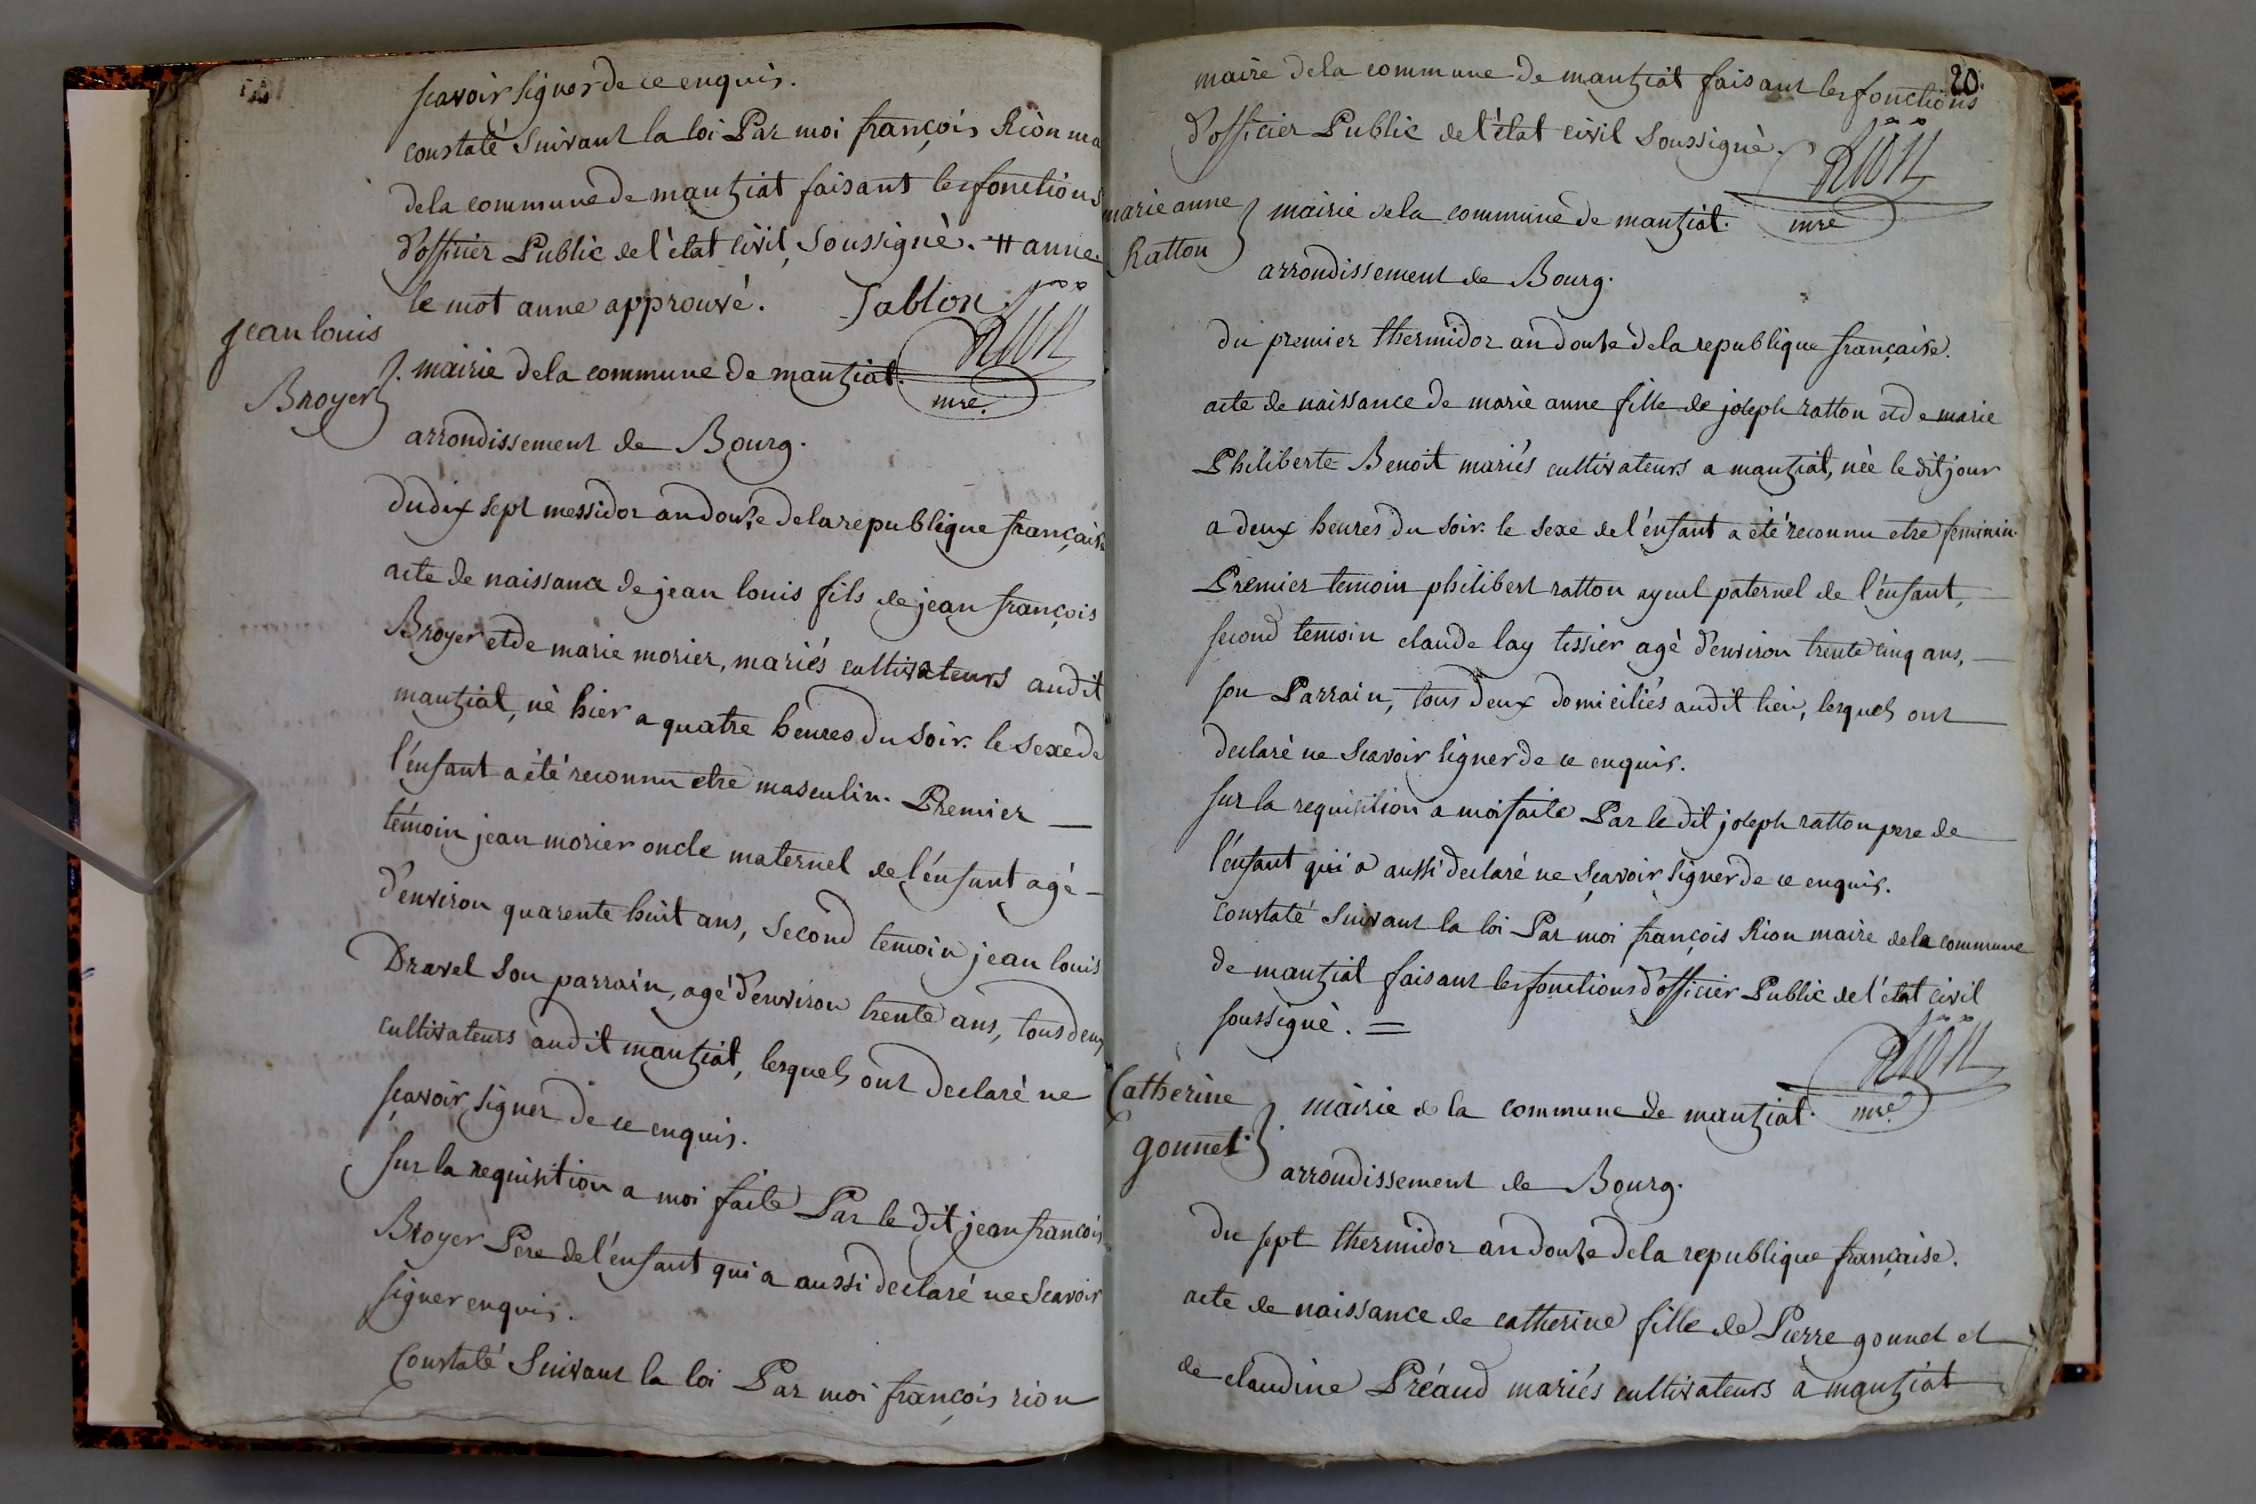 scavoir signer de ce enquis.
constaté suivant la loi Par moi françois Rion ma
dela commune de mantziat faisant les fonctions
d'officier Public de l'état Civil, Soussigné. # anne.
le mot anne approuvé. Sablon
Rion
mre.
jean louis
Broyer
mairie dela commune de mantziat.
arrondissement de Bourg.
du dix sept messidor an douze dela republique française
acte de naissance de jean louis fils de jean françois
Broyer et de marie morier, mariés cultivateurs audit
mantziat, né hier a quatre heures du soir. le sexe de
l'énfant a été reconnu etre masculin. Premier
témoin jean morier oncle maternel de l'énfant agé
d'environ quarente huit ans, second temoin jean louis
Dravel son parrain, agé d'environ trente ans, tous deux
cultivateurs audit mantziat, lesquels ont declaré ne
sçavoir signer de ce enquis.
Sur la requisition a moi faite Par le dit jean françois
Broyer Pere de l'énfant qui a aussi declaré ne scavoir
signer enquis.
Constaté Suivant la loi Par moi françois rion
20.
maire dela commune de mantziat faisant les fonctions
d'officier Public de l'état civil soussigné.
Rion
mre
marie anne
Ratton
mairie dela commune de mantziat.
arrondissement de Bourg.
du premier thermidor an douze dela republique française.
acte de naissance de marie anne fille de joseph ratton et de marie
Philiberte Benoit mariés cultivateurs a mantziat, née le dit jour
a deux heures du soir. le sexe de l'énfant a été reconnu etre feminin.
Premier temoin philibert ratton ayeul paternel de l'énfant,
second temoin claude lay tissier agé d'environ trente cinq ans,
son Parrain, tous deux domiciliés audit lieu, lesquels ont
declaré ne scavoir signer de ce enquis.
sur la requisition a moi faite Par le dit joseph ratton pere de
l'énfant qui a aussi declaré ne sçavoir signer de ce enquis.
constaté suivant la loi Par moi françois Rion maire dela commune
de mantziat faisant les fonctions d'officier Public de l'état civil
soussigné. =
Rion
mre
Catherine
gonnet
mairie de la commune de mantziat.
arrondissement de Bourg.
du sept thermidor an douze dela republique française.
acte de naissance de catherine fille de Pierre gonnet et
de claudine Préaud mariés cultivateurs a mantziat